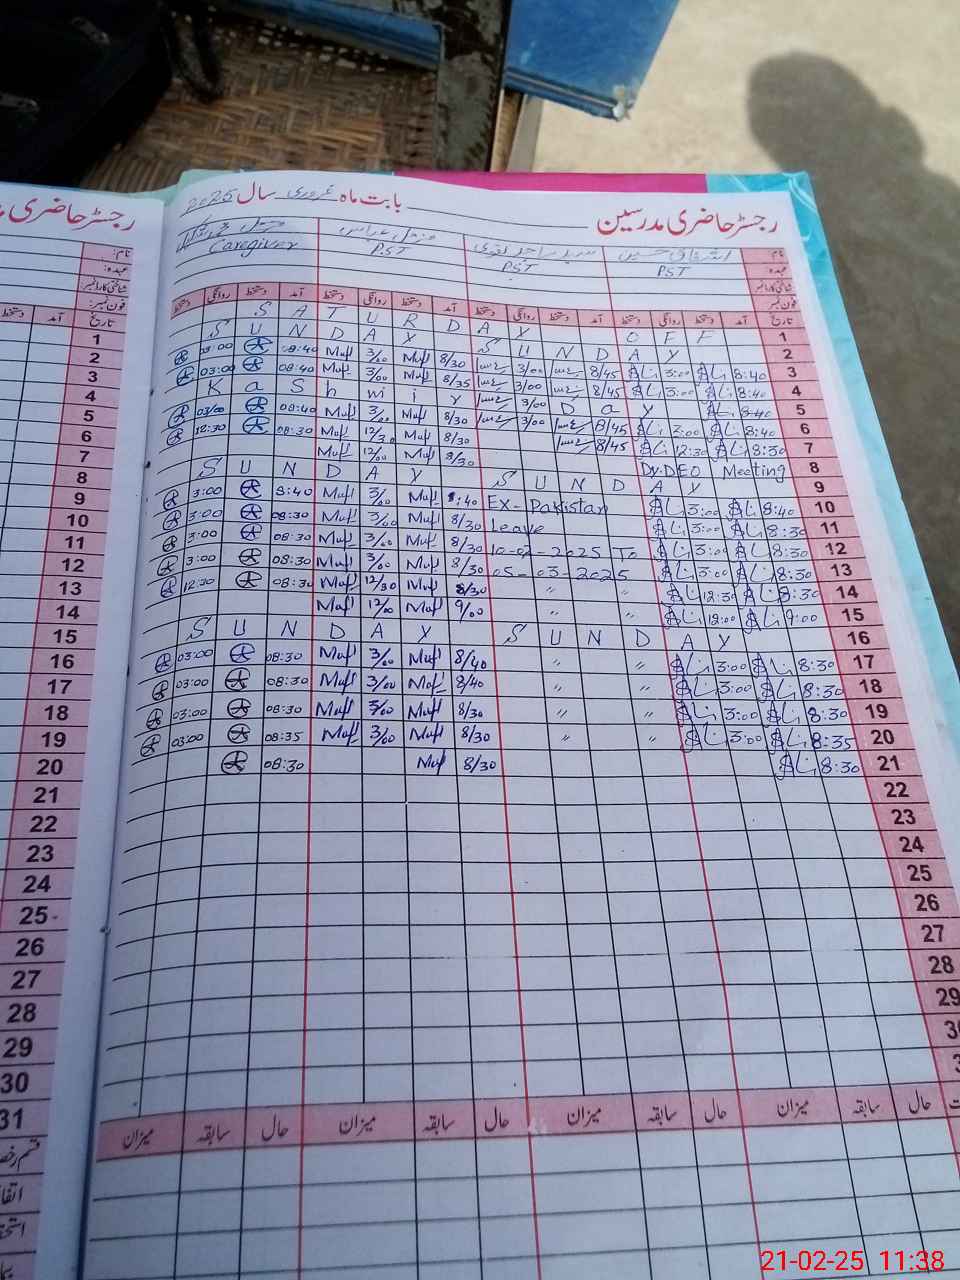 رجسٹر حاضری مدرسین بابت ماہ فروری سال 2025
رجسٹر حاضری
نام:
عہدہ: PST PST P.ST Caregiver
شناختی کارڈ نمبر
فون نمبر:
تاریخ آمد دستخط روانگی دستخط آمد دستخط روانگی دستخط آمد دستخط روانگی دستخط آمد دستخط روانگی
1 SATURDAY OFF
2 SUNDAY SUNDAY
3 8:40 3:00 8/45 3/00 8/30 Muf 3/00 Muf 08:40 03:00
4 8:40 3:00 8/45 3/00 8/35 Muf 3/00 Muf 08:40 03:00
5 Kashmir Day 8:40
6 8:40 3:00 8/45 3/00 8/30 Muf 3/00 Muf 08:40 03:00
7 8:30 12:30 8/45 8/30 Muf 12/30 Muf 08:30 12:30
8 Dy.DEO Meeting 8/30 Muf 12/00 Muf
9 SUNDAY SUNDAY
10 8:40 3:00 Ex-Pakistan 8:40 Muf 3/00 Muf 8:40 3:00
11 8:30 3:00 Leave 8/30 Muf 3/00 Muf 08:30 3:00
12 8:30 3:00 10-02-2025 To 8/30 Muf 3/00 Muf 08:30 3:00
13 8:30 3:00 05-03-2025 8/30 Muf 3/00 Muf 08:30 3:00
14 8:30 12:30 " " 8/30 Muf 12/30 Muf 08:30 12:30
15 9:00 12:00 " " 9/00 Muf 12/00 Muf
16 SUNDAY SUNDAY
17 8:30 3:00 " " 8/40 Muf 3/00 Muf 08:30 03:00
18 8:30 3:00 " " 8/40 Muf 3/00 Muf 08:30 03:00
19 8:30 3:00 " " 8/30 Muf 3/00 Muf 08:30 03:00
20 8:35 3:00 " " 8/30 Muf 3/00 Muf 08:35 03:00
21 8:30 8/30 Muf 08:30
22
23
24
25
26
27
28
29
حال سابقہ میزان حال سابقہ میزان حال سابقہ میزان حال سابقہ میزان
آمد دستخط تاریخ
1
2
3
4
5
6
7
8
9
10
11
12
13
14
15
16
17
18
19
20
21
22
23
24
25
26
27
28
29
30
31
21-02-25 11:38